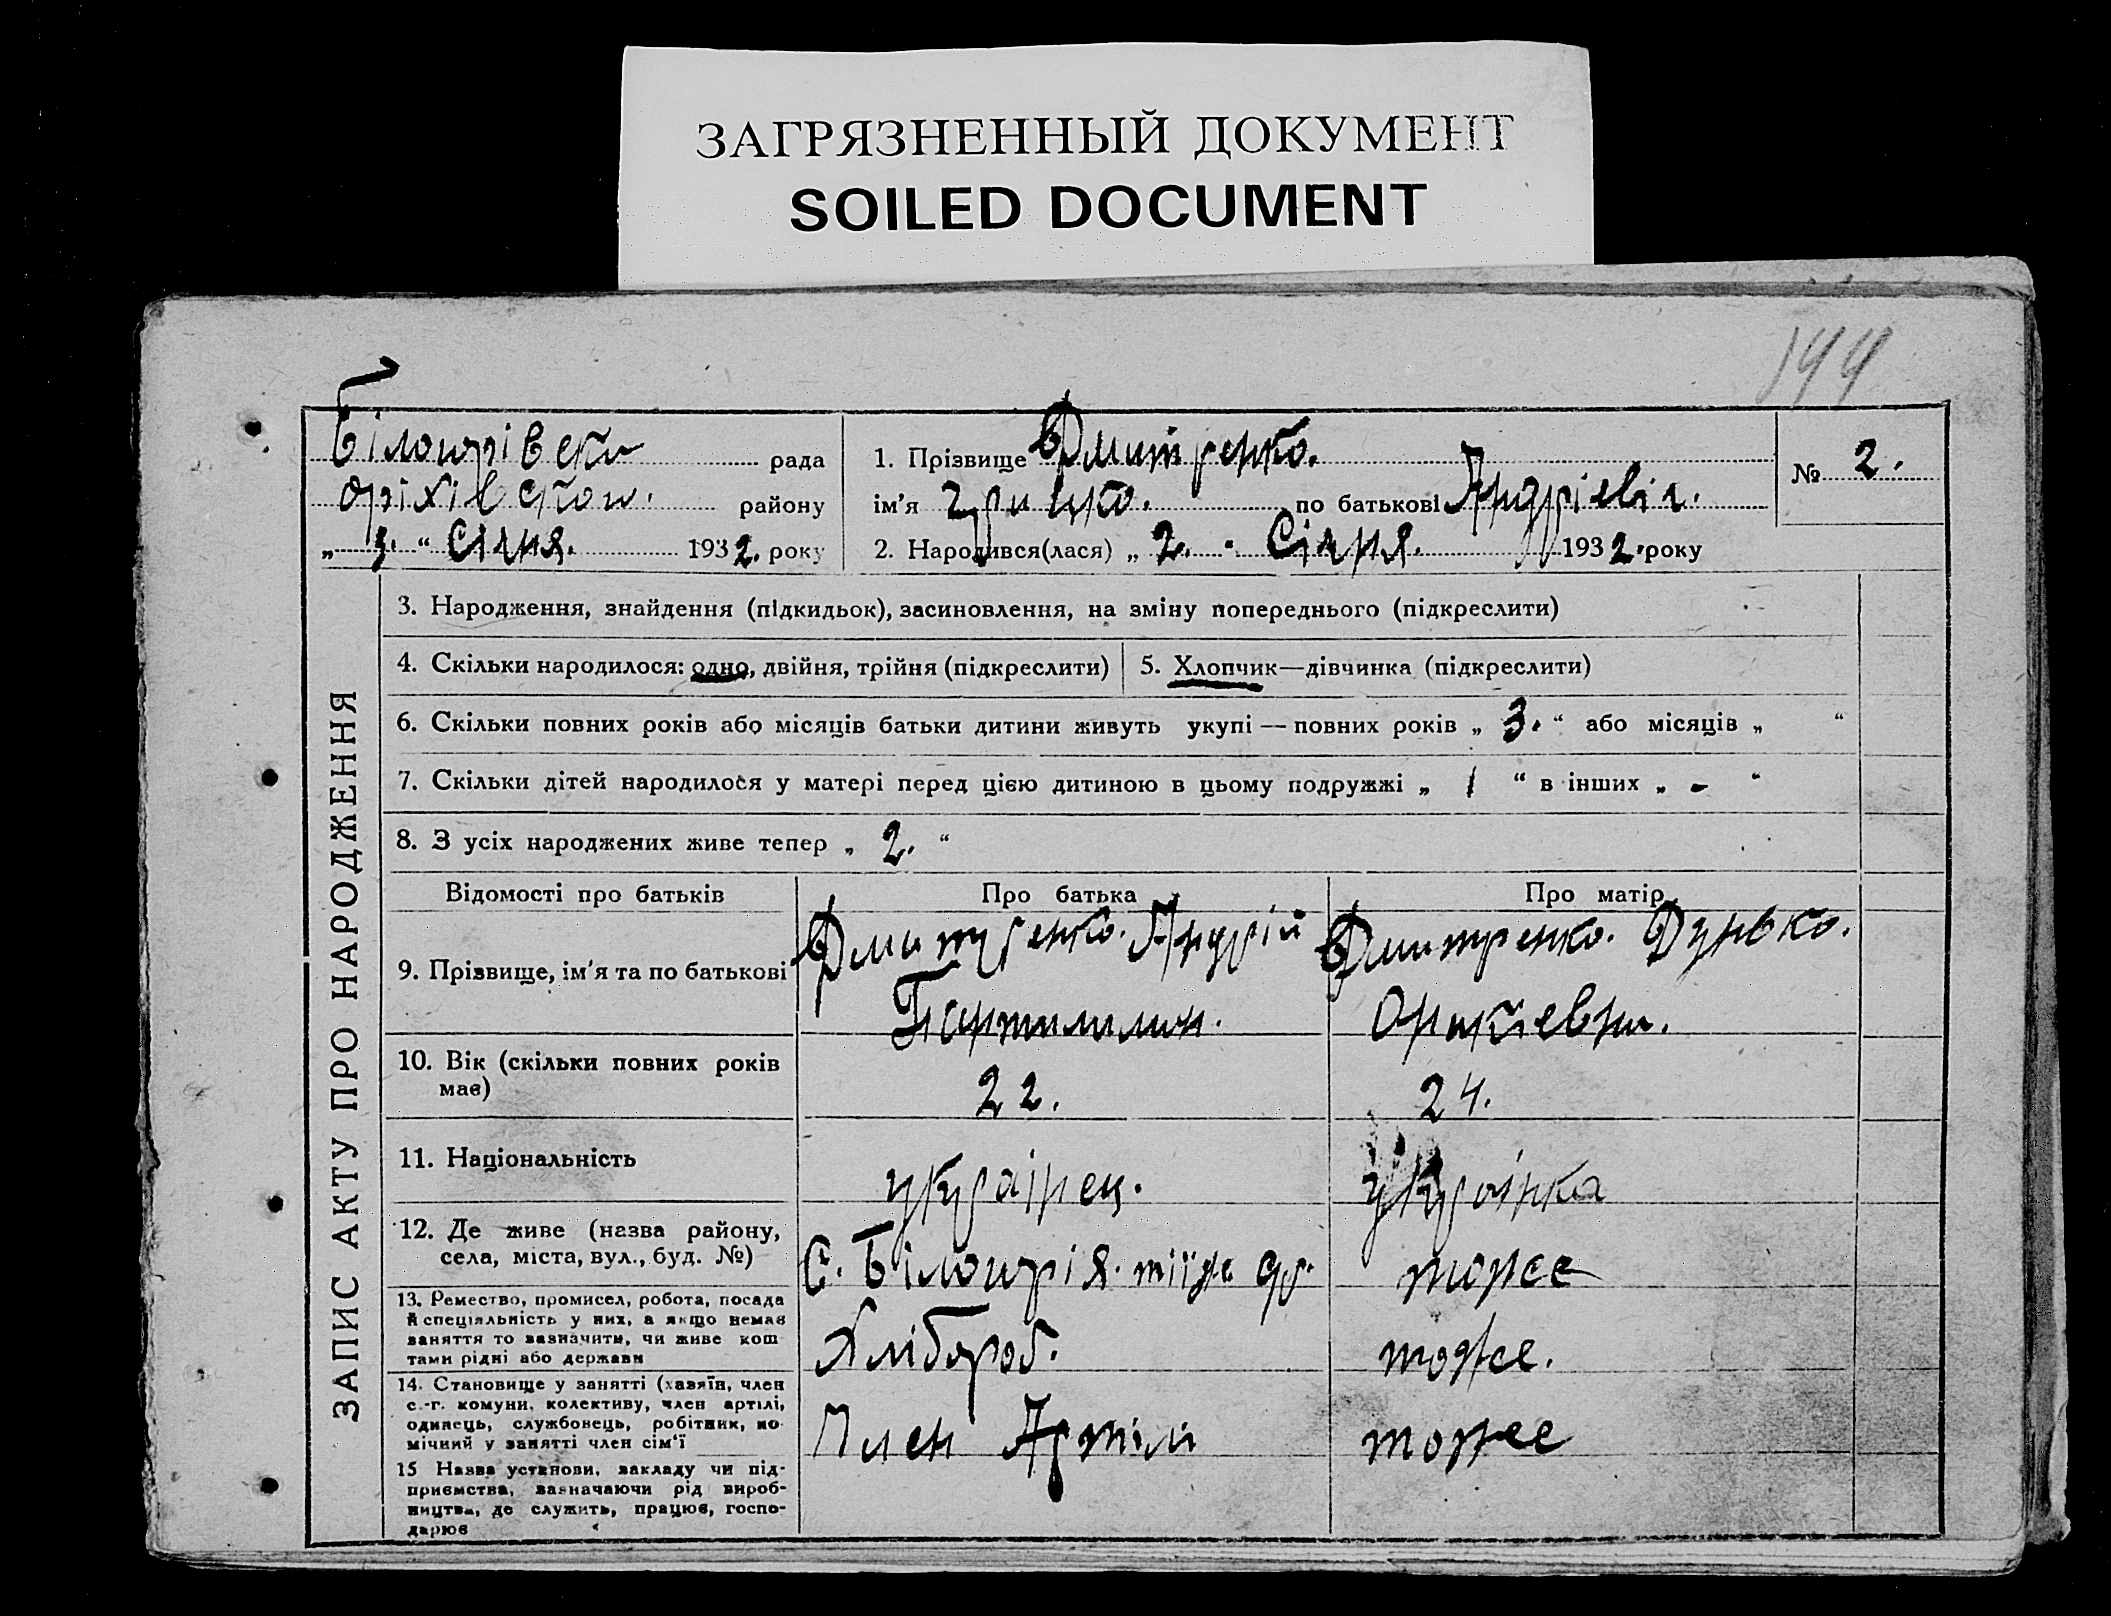 ЗАГРЯЗНЕННЫЙ ДОКУМЕНТ
SOILED DOCUMENT
рада
району
„ 3. “ Січня. 1932. року
1. Прізвище Дмитренко.
ім'я Грицко. по батькові Андрієвіч.
2. Народився(лася) „ 2. “ Січня. 1932. року
№ 2.
ЗАПИС АКТУ ПРО НАРОДЖЕННЯ
3. Народження, знайдення (підкидьок), засиновлення, на зміну попереднього (підкреслити)
4. Скільки народилося: одно, двійня, трійня (підкреслити)
5. Хлопчик—дівчинка (підкреслити)
6. Скільки повних років або місяців батьки дитини живуть укупі — повних років „ 3. “ або місяців „ “
7. Скільки дітей народилося у матері перед цією дитиною в цьому подружжі „ 1 “ в інших „ - “
8. З усіх народжених живе тепер „ 2. “
Відомості про батьків
Про батька
Про матір
9. Прізвище, ім'я та по батькові
Дмитренко. Андрій
Дмитренко. Дунько.
10. Вік (скільки повних років
має)
22.
24.
11. Національність
українец.
українка
12. Де живе (назва району,
села, міста, вул., буд. №)
С. Білогирія.
тоже
13. Ремество, промисел, робота, посада
й спеціяльність у них, а якщо немає
заняття то зазначити, чи живе кош
тами рідні або держави
Хлібороб.
тоже.
14. Становище у занятті (хазяїн, член
с.-г. комуни, колективу, член артілі,
одинець, службовець, робітник, по-
мічний у занятті член сім'ї
Член Артілі
тоже
15 Назва установи, закладу чи під-
приємства, зазначаючи рід вироб-
ництва, де служить, працює, госпо-
дарює